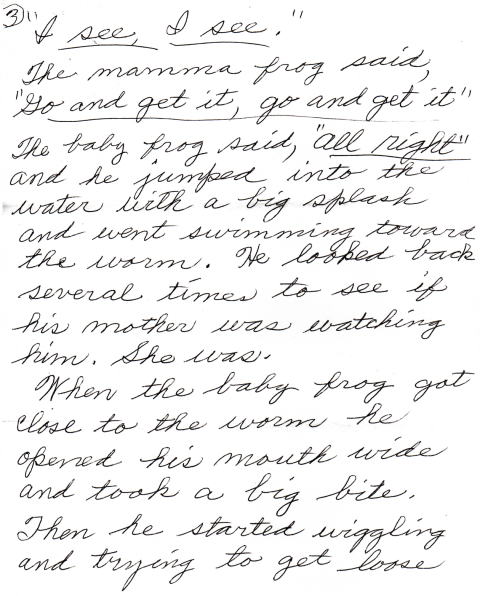 ③ "I see, I see."
The mamma frog said,
"Go and get it, go and get it"
The baby frog said, "all right"
and he jumped into the
water with a big splash
and went swimming toward
the worm. He looked back
several times to see if
his mother was watching
him. She was.
When the baby frog got
close to the worm he
opened his mouth wide
and took a big bite.
Then he started wiggling
and trying to get loose